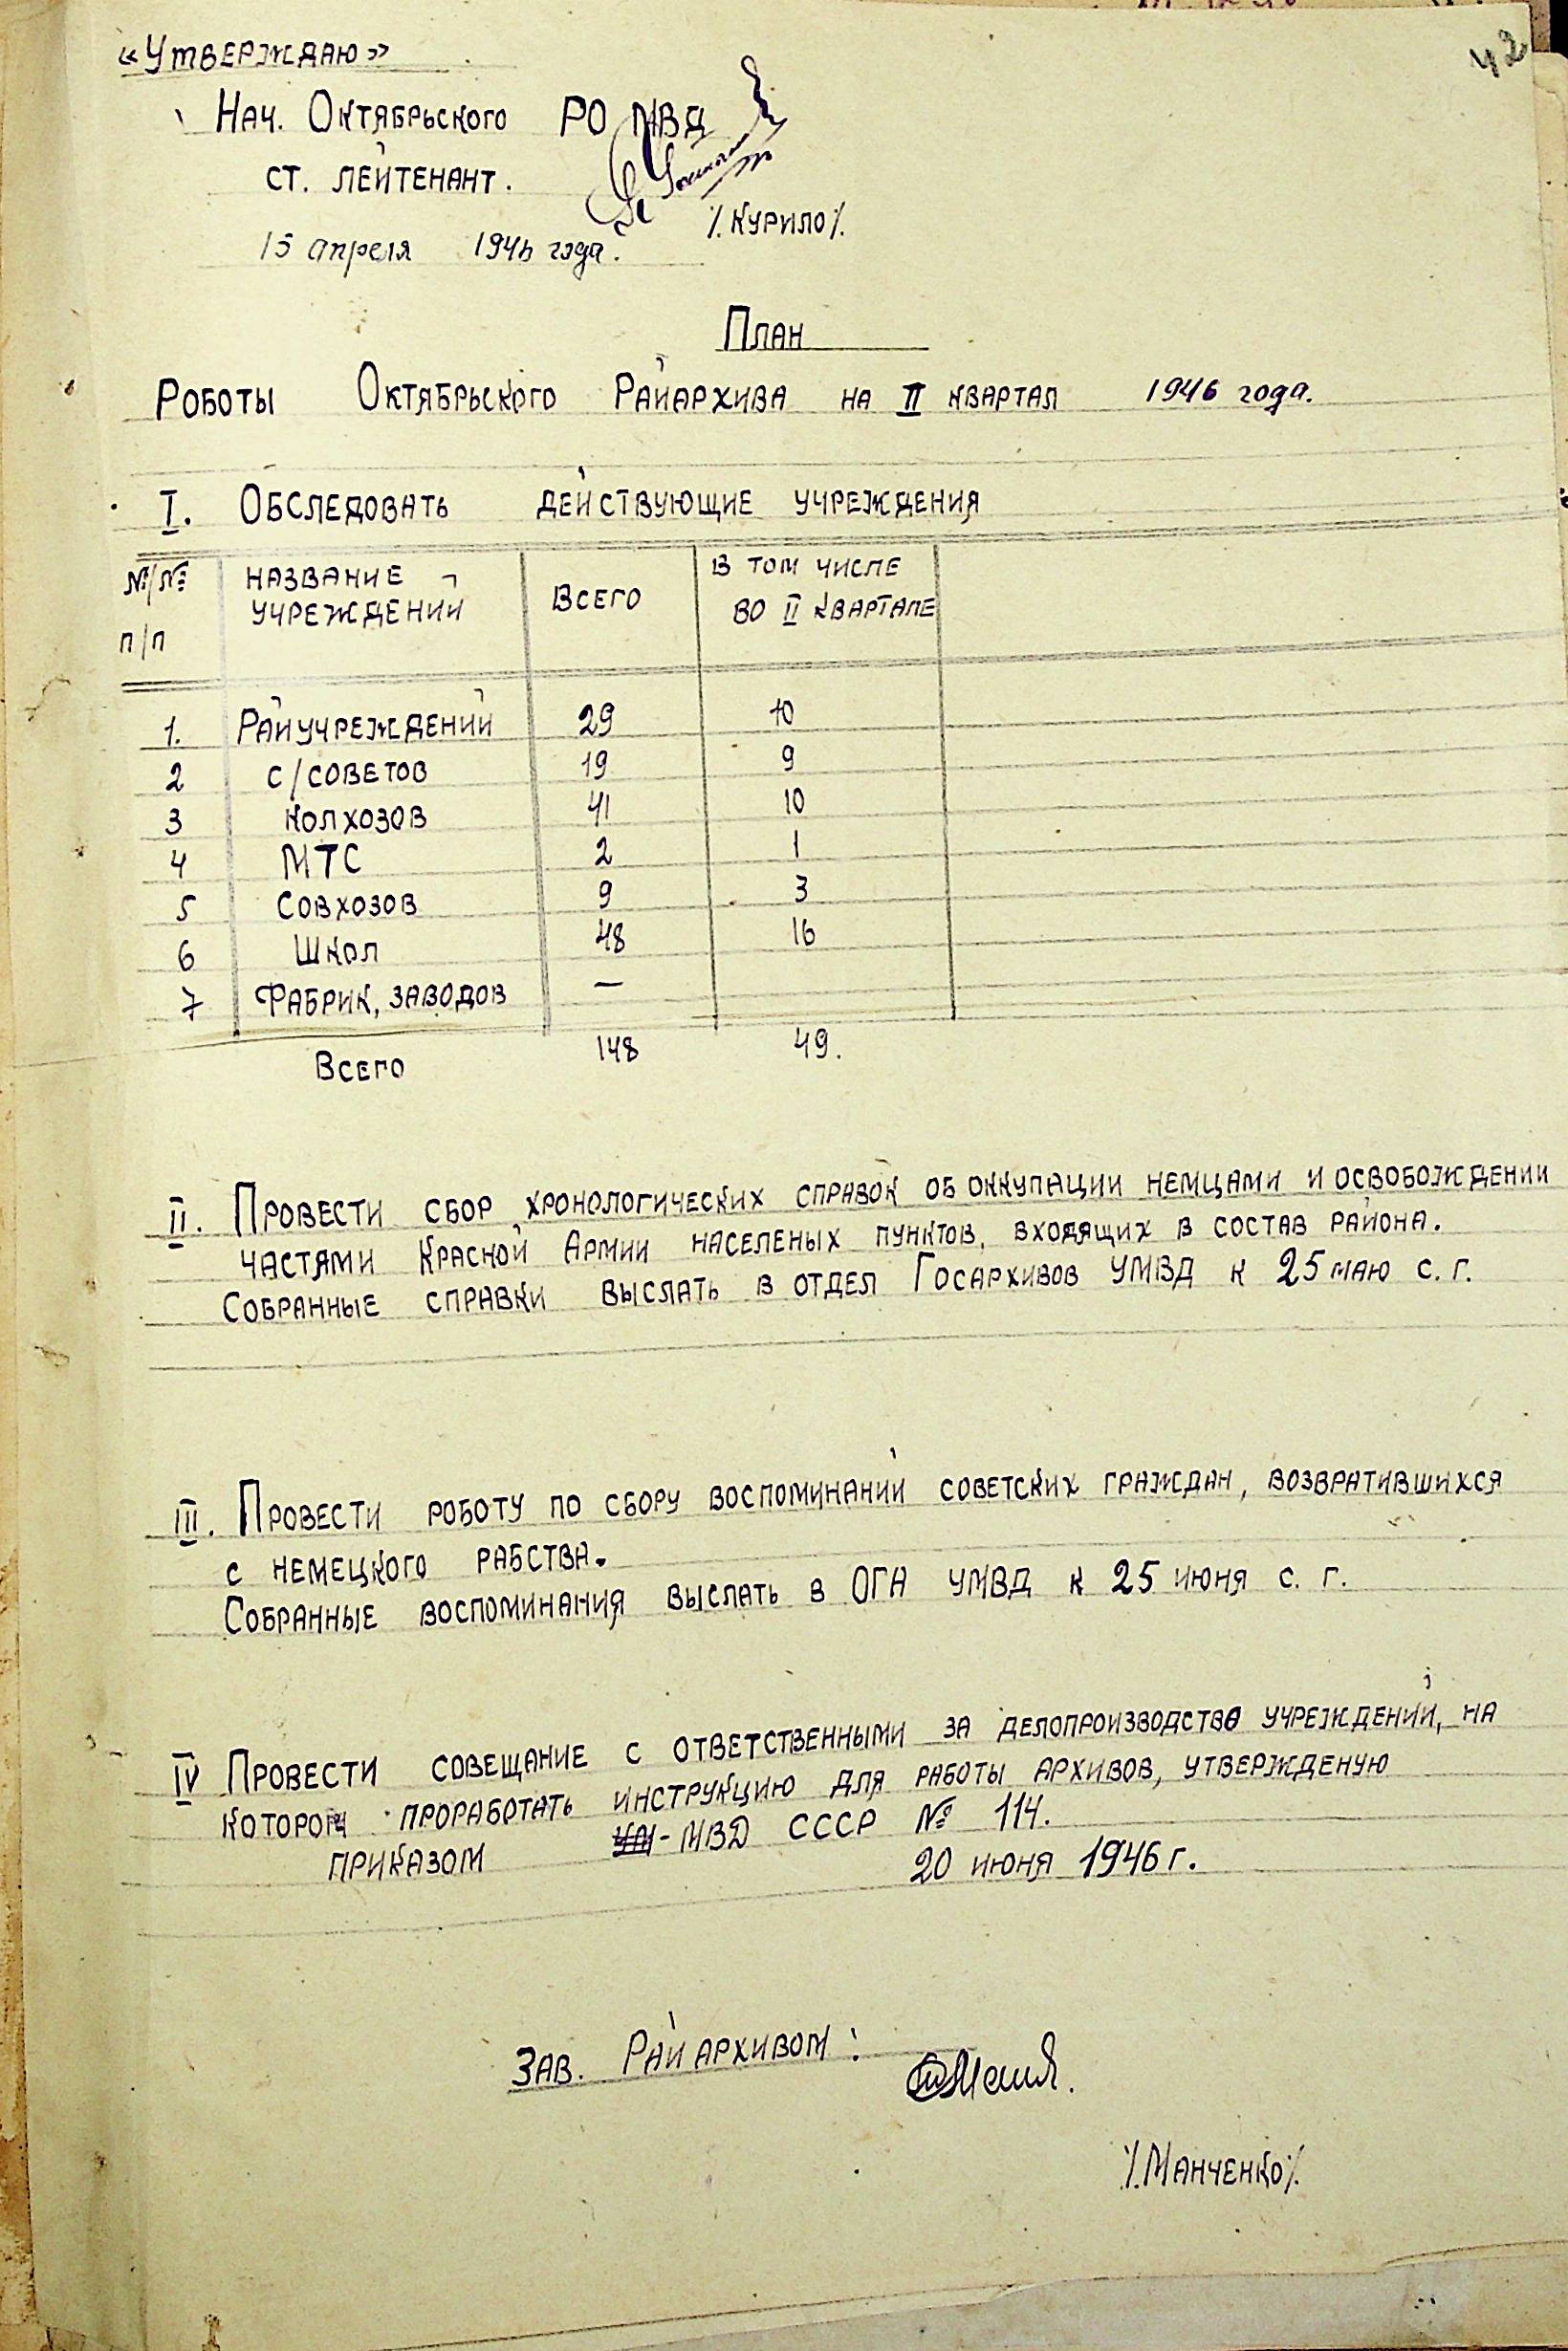 42
«Утверждаю»
Нач. Октябрьского РО МВД
ст. лейтенант.
/.Курило/.
15 апреля 1946 года.
План
Роботы Октябрьского Райархива на II квартал 1946 года.
I. Обследовать действующие учреждения
№/№ п/п | Название учреждений | Всего | в том числе во II квартале
1. Райучреждений 29 10
2 с/советов 19 9
3 колхозов 41 10
4 МТС 2 1
5 Совхозов 9 3
6 Школ 48 16
7 Фабрик, заводов —
Всего 148 49.
II. Провести сбор хронологических справок об оккупации немцами и освобождении
частями Красной Армии населеных пунктов, входящих в состав района.
Собранные справки выслать в отдел Госархивов УМВД к 25 маю с. г.
III. Провести роботу по сбору воспоминаний советских граждан, возвратившихся
с немецкого рабства.
Собранные воспоминания выслать в ОГА УМВД к 25 июня с. г.
IV Провести совещание с ответственными за делопроизводство учреждений, на
котором проработать инструкцию для работы архивов, утвержденую
приказом МВД СССР № 114.
20 июня 1946 г.
Зав. Райархивом:
/.Манченко/.